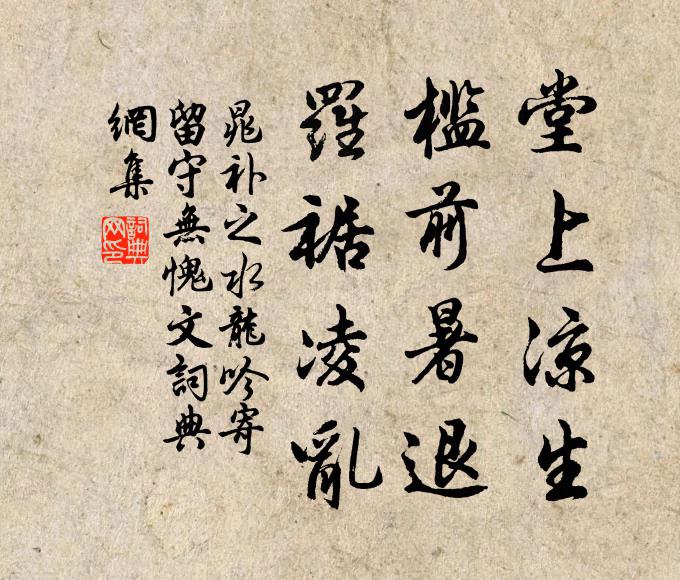 堂上涼生
檻前暑退
羅裾凌亂
晁補之水龍吟寄
留守無愧文詞典
網集
詞典
网印